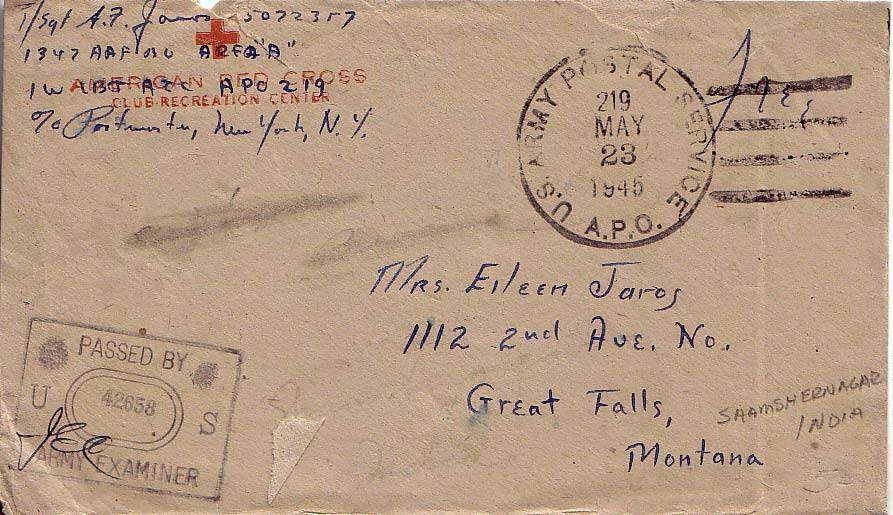 T/Sgt A.F. Jaros
1347 AAF BU AREA "A"
AMERICAN RED CROSS
APO 219
CLUB-RECREATION CENTER
℅ Postmaster, New York, N.Y.
U.S. ARMY POSTAL SERVICE
219
MAY
23
1945
A.P.O.
Free
Mrs. Eileen Jaros
1112 2nd Ave. No.
Great Falls,
Montana
SAAMSHERNAGAR
INDIA
PASSED BY
U 42658 S
ARMY EXAMINER